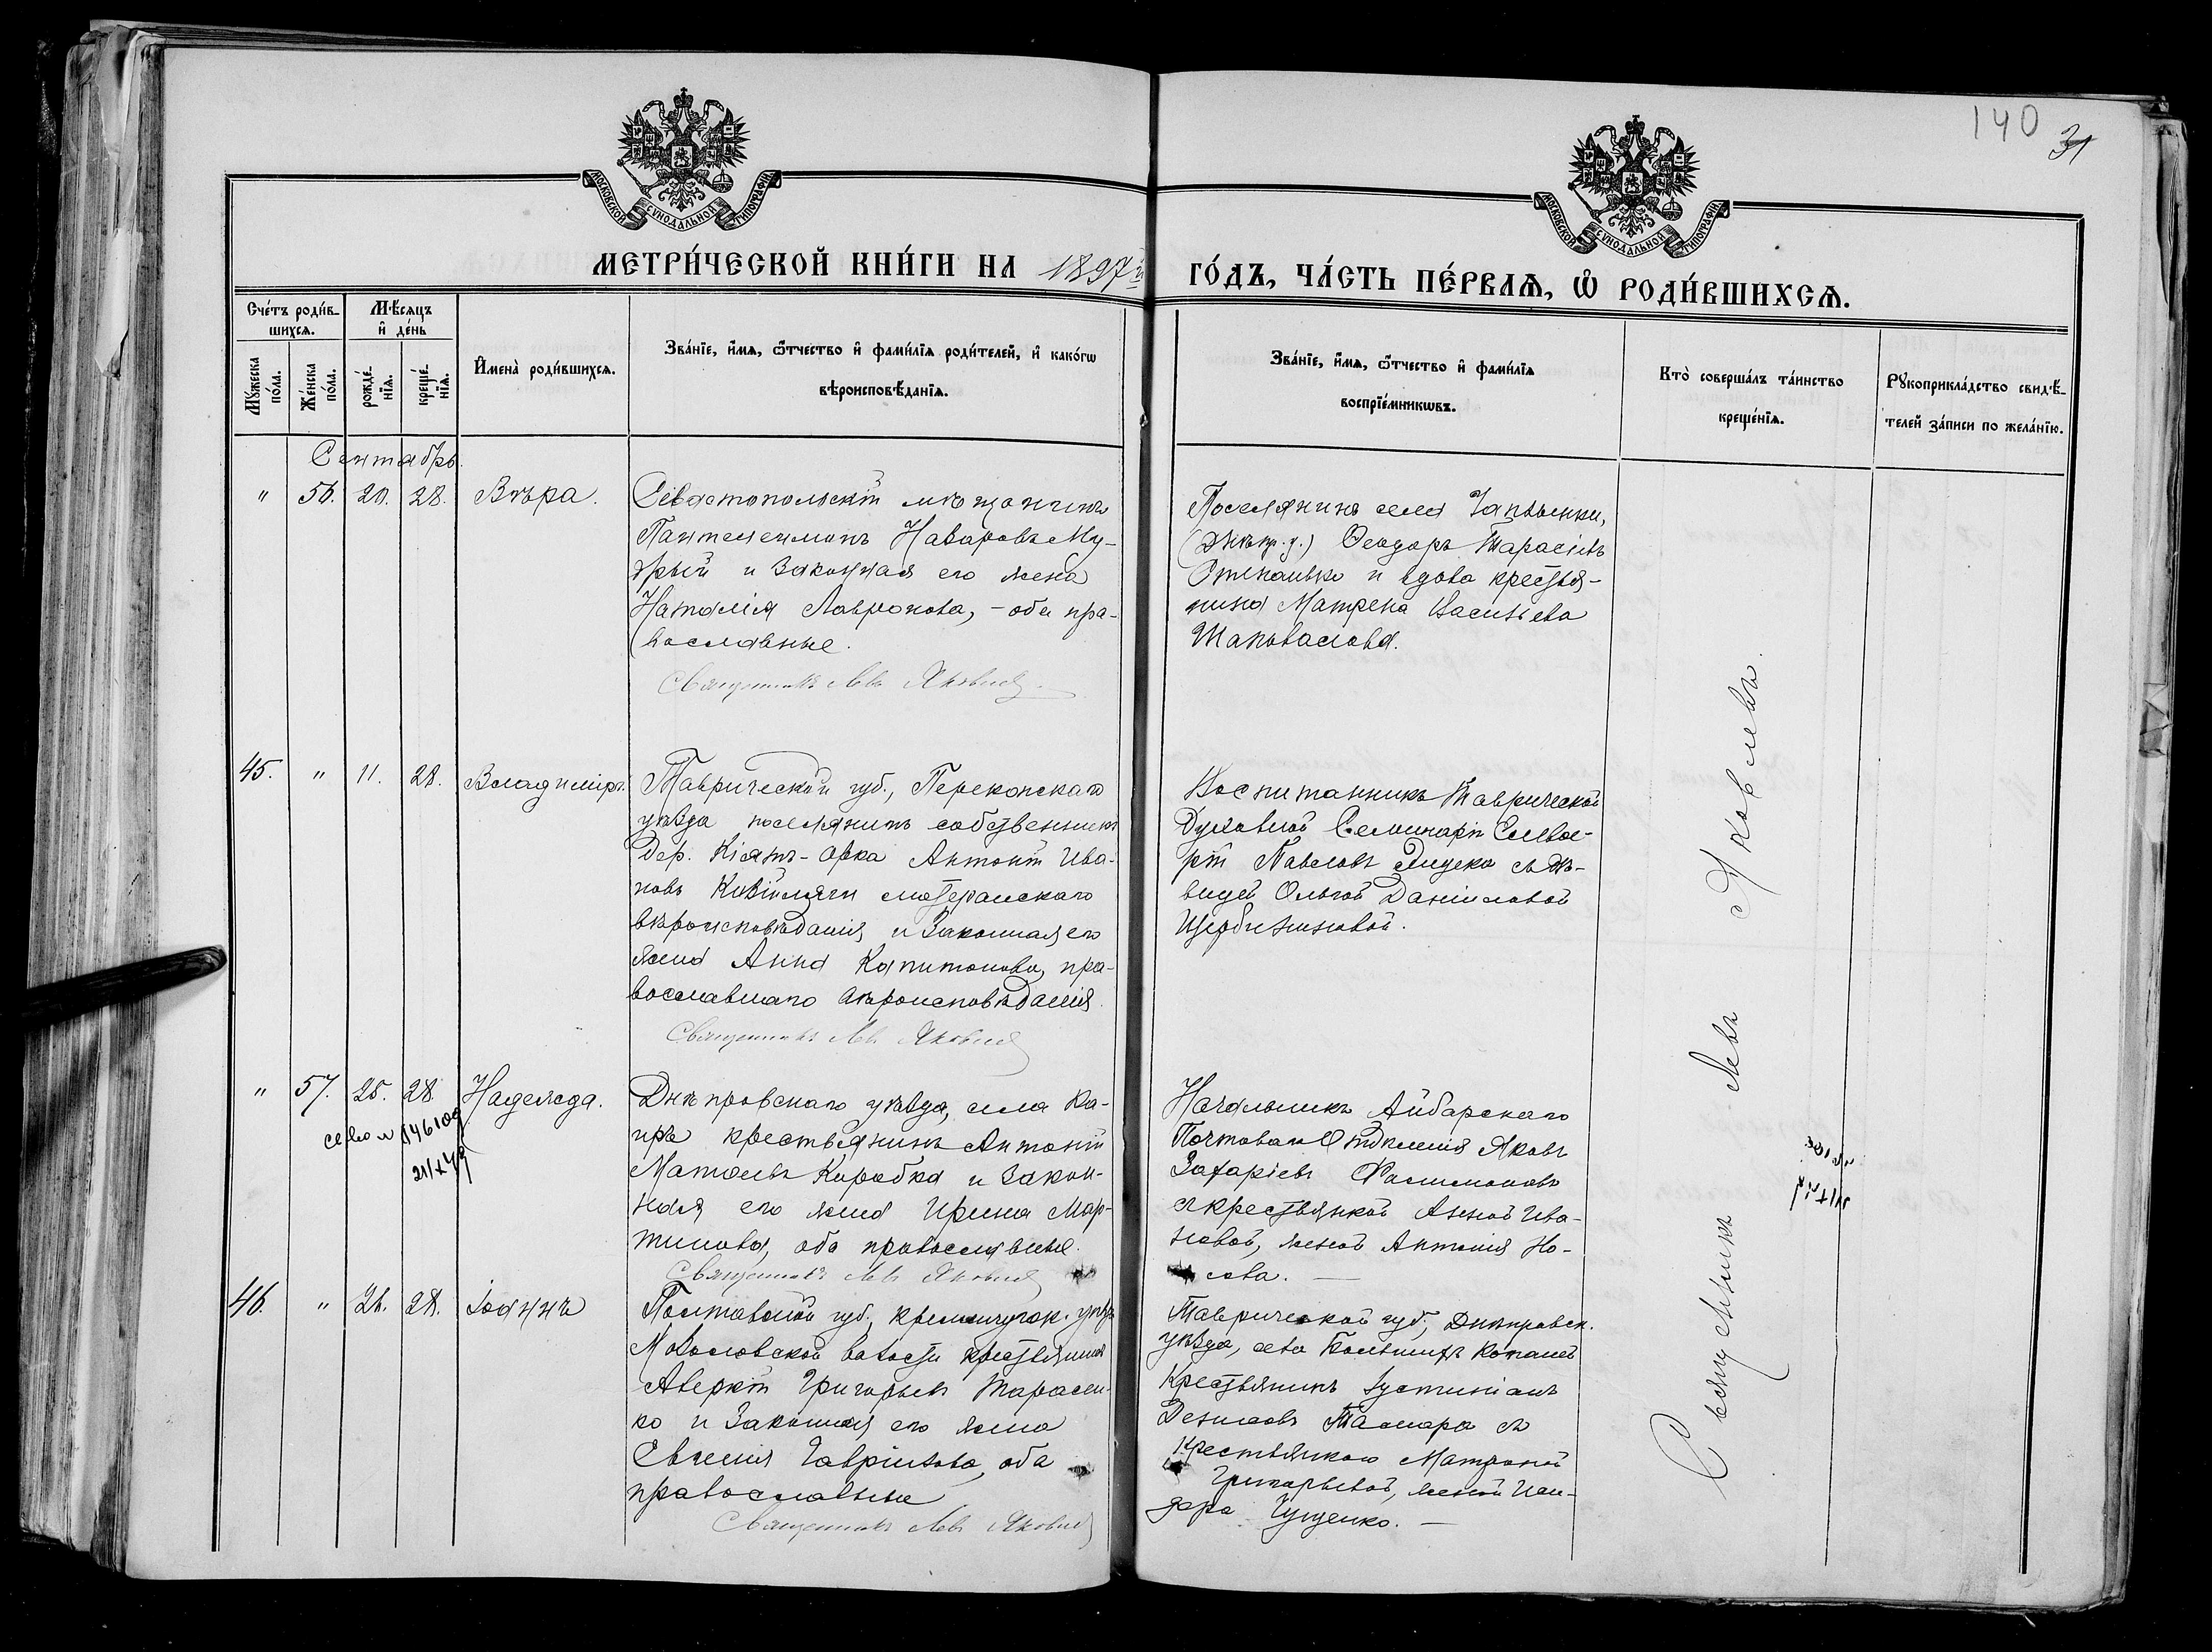 140
31
МОСКОВСКОЙ СУНОДАЛЬНОЙ ТИПОГРАФІИ
МОСКОВСКОЙ СУНОДАЛЬНОЙ ТИПОГРАФІИ
МЕТРИ́ЧЕСКОЙ КНИ́ГИ НА 1897й
ГО́ДЪ, ЧА́СТЬ ПЕ́РВАѦ, Ѡ҆ РОДИ́ВШИХСѦ.
Сче́тъ роди́в-
шихсѧ.
Мѣ́сѧцъ
и҆ де́нь
Мꙋ́жеска
по́ла.
Же́нска
по́ла.
рожде́-
нїѧ.
креще́-
нїѧ.
И҆мена̀ роди́вшихсѧ.
Зва́нїе, и҆́мѧ, ѻ҆́тчество и҆ фами́лїѧ роди́телей, и҆ како́гѡ
вѣроисповѣ́данїѧ.
Зва́нїе, и҆́мѧ, ѻ҆́тчество и҆ фами́лїѧ
воспрїе́мникѡвъ.
Кто̀ соверша́лъ та́инство
креще́нїѧ.
Рꙋкоприкла́дство свидѣ́-
телей за́писи по жела́нїю.
Сентябрь.
" 56. 20. 28. Вѣра.
Севастопольскій мѣщанинъ
Пантелеимонъ Назаровъ Му-
дрый и законная его жена
Наталія Лаврова, – оба пра-
вославные.
Священникъ Левъ Яковлевъ
Поселянинъ села Чаплынки,
(Днѣпр. у.) Ѳеодоръ Тарасіевъ
Степанько и вдова крестья-
нина Матрена Васильева
Шаповалова.
45. " 11. 28. Владиміръ.
Таврической губ., Перекопскаго
уѣзда поселянинъ собственникъ
дер. Кіятъ-Орка Антонъ Ива-
новъ лютеранскаго
вѣроисповѣданія и законная его
жена Анна Капитонова, пра-
вославнаго вѣроисповѣданія.
Священникъ Левъ Яковлевъ
Воспитанникъ Таврической
Духовной Семинаріи Сильве-
рій Павловъ съ дѣ-
вицей Ольгой Даніиловой
Щербининовой.
" 57. 25. 28. Надежда.
Днѣпровскаго уѣзда, села Ка-
иръ крестьянинъ Антоній
Коробка и закон-
ная его жена Ирина Мар-
тинова, оба православные.
Священникъ Левъ Яковлевъ
Начальникъ Айбарскаго
Почтоваго Отдѣленія Яковъ
Захаріевъ Филимоновъ
съ крестьянкой Анной Ива-
новой, женой Антонія Но-
сова. —
46. " 26. 28. Іоаннъ
Полтавской губ., Кременчугск. уѣзда
волости крестьянинъ
Аверкій Григорьевъ Тарасен-
ко и законная его жена
Евгенія Гавріилова, оба
православные
Священникъ Левъ Яковлевъ
Таврической губ., Днѣпровск.
уѣзда, села Большихъ Копаней
Крестьянинъ Іустиніанъ
Денисовъ Тамара съ
крестьянкою Матроной
Григорьевой, женой Иси-
дора Гущенко. —
Священникъ Левъ Яковлевъ.